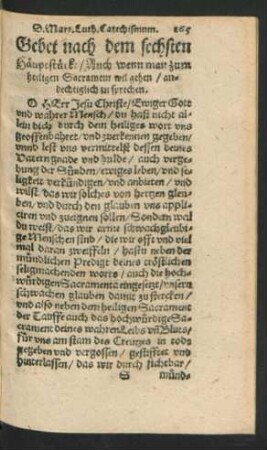 D. Mart. Luth. Catechismum. 265
Gebet nach dem sechsten
Häuptstück/ Auch wenn man zum
heiligen Sacrament wil gehen/ an-
dechtiglich zu sprechen.
O HErr Jesu Christe/ Ewiger Gott
und wahrer Mensch/ du hast nicht al-
lein dich durch dein heiliges wort uns
geoffenbahret/ und zuerkennen gegeben/
unnd lest uns vermittelst dessen deines
Vatern gnade und hulde/ auch verge-
bung der Sünden/ ewiges leben/ und se-
ligkeit verkündigen/ und anbieten/ und
wilst/ das wir solches von hertzen gleu-
ben/ und durch den glauben uns appli-
ciren und zueignen sollen/ Sondern weil
du weist/ das wir arme schwachgleubi-
ge Menschen sind/ die wir offt und viel
mal daran zweiffeln/ hastu neben der
mündlichen Predigt deines tröstlichen
seligmachenden worts/ auch die hoch-
würdigen Sacramenta eingesetzt/ unsern
schwachen glauben damit zu stercken/
und also neben dem heiligen Sacrament
der Tauffe auch das hochwürdige Sa-
crament deines wahren Leibs uñ Bluts/
für uns am stam des Creutzes in tods
gegeben und vergossen/ gestifftet und
hinterlassen/ das wir durch sichtbar/
S münd-